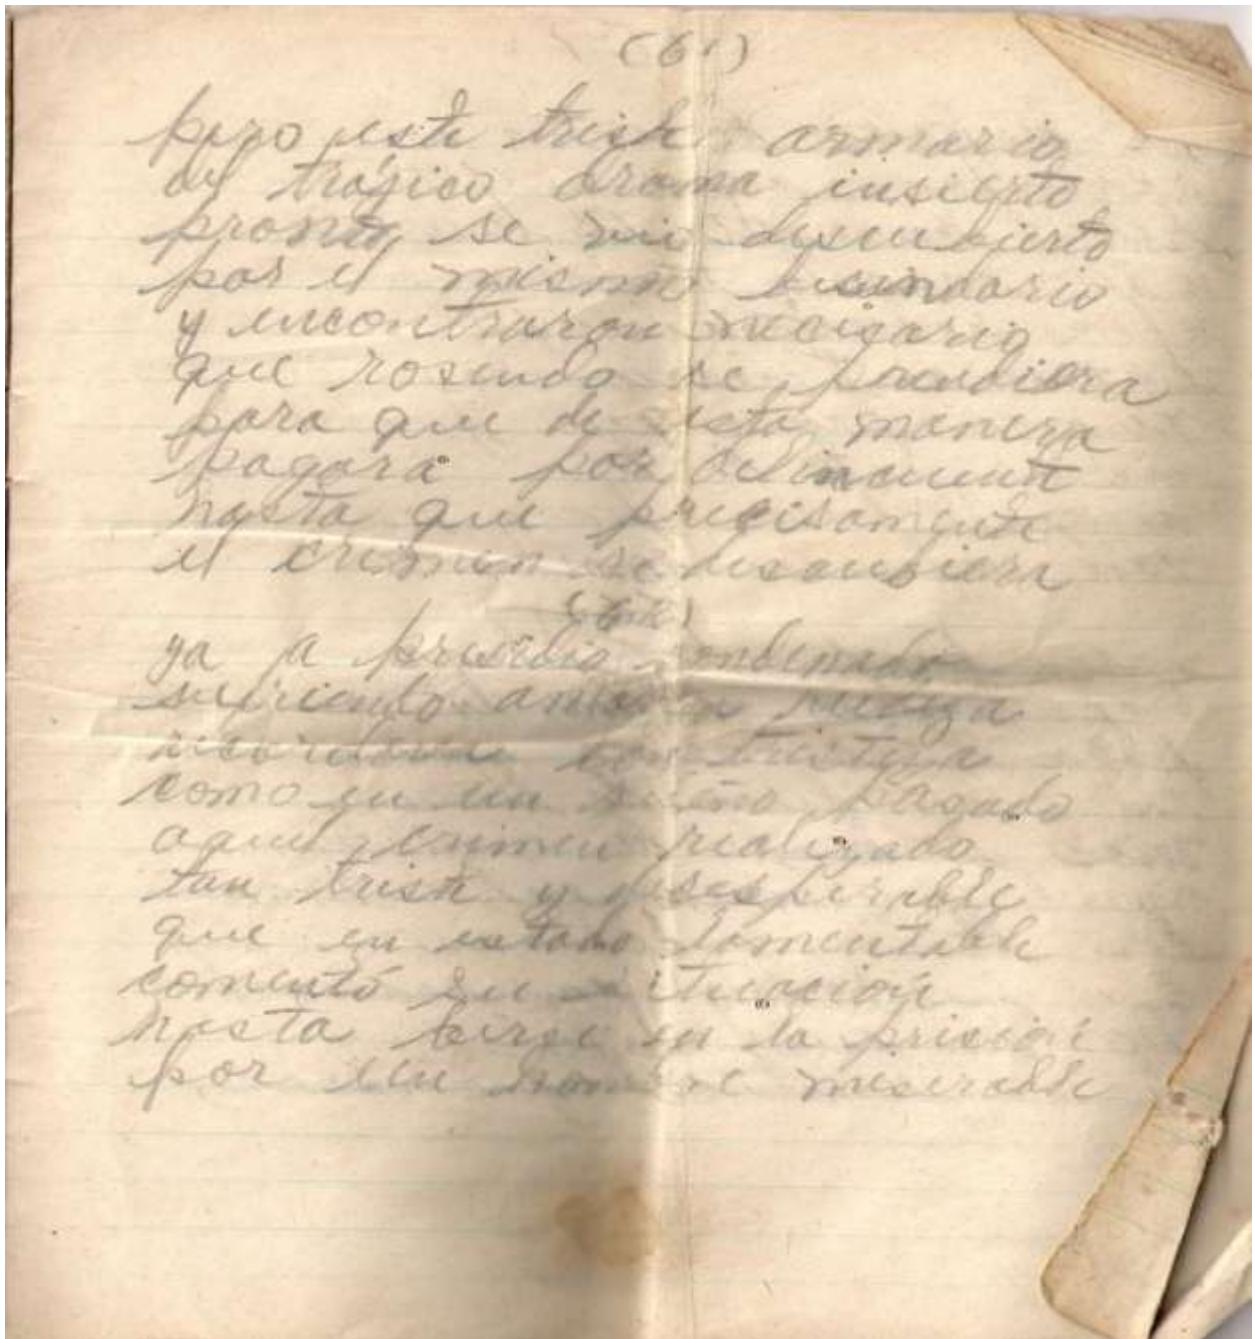 (61)
pero este triste armario
del trágico drama insierto
pronto se vio descubierto
por el mismo
y encontraron necesario
que rosendo se
para que de esta manera
pagara por delincuente
hasta que precisamente
el crimen se descubiera
(62)
ya a presidio condenado
sufriendo
con tristeza
como en un sueño pasado
aquel crimen realizado
tan triste y desesperable
que en estado lamentable
comentó su situación
hasta berse en la prisión
por un hombre miserable